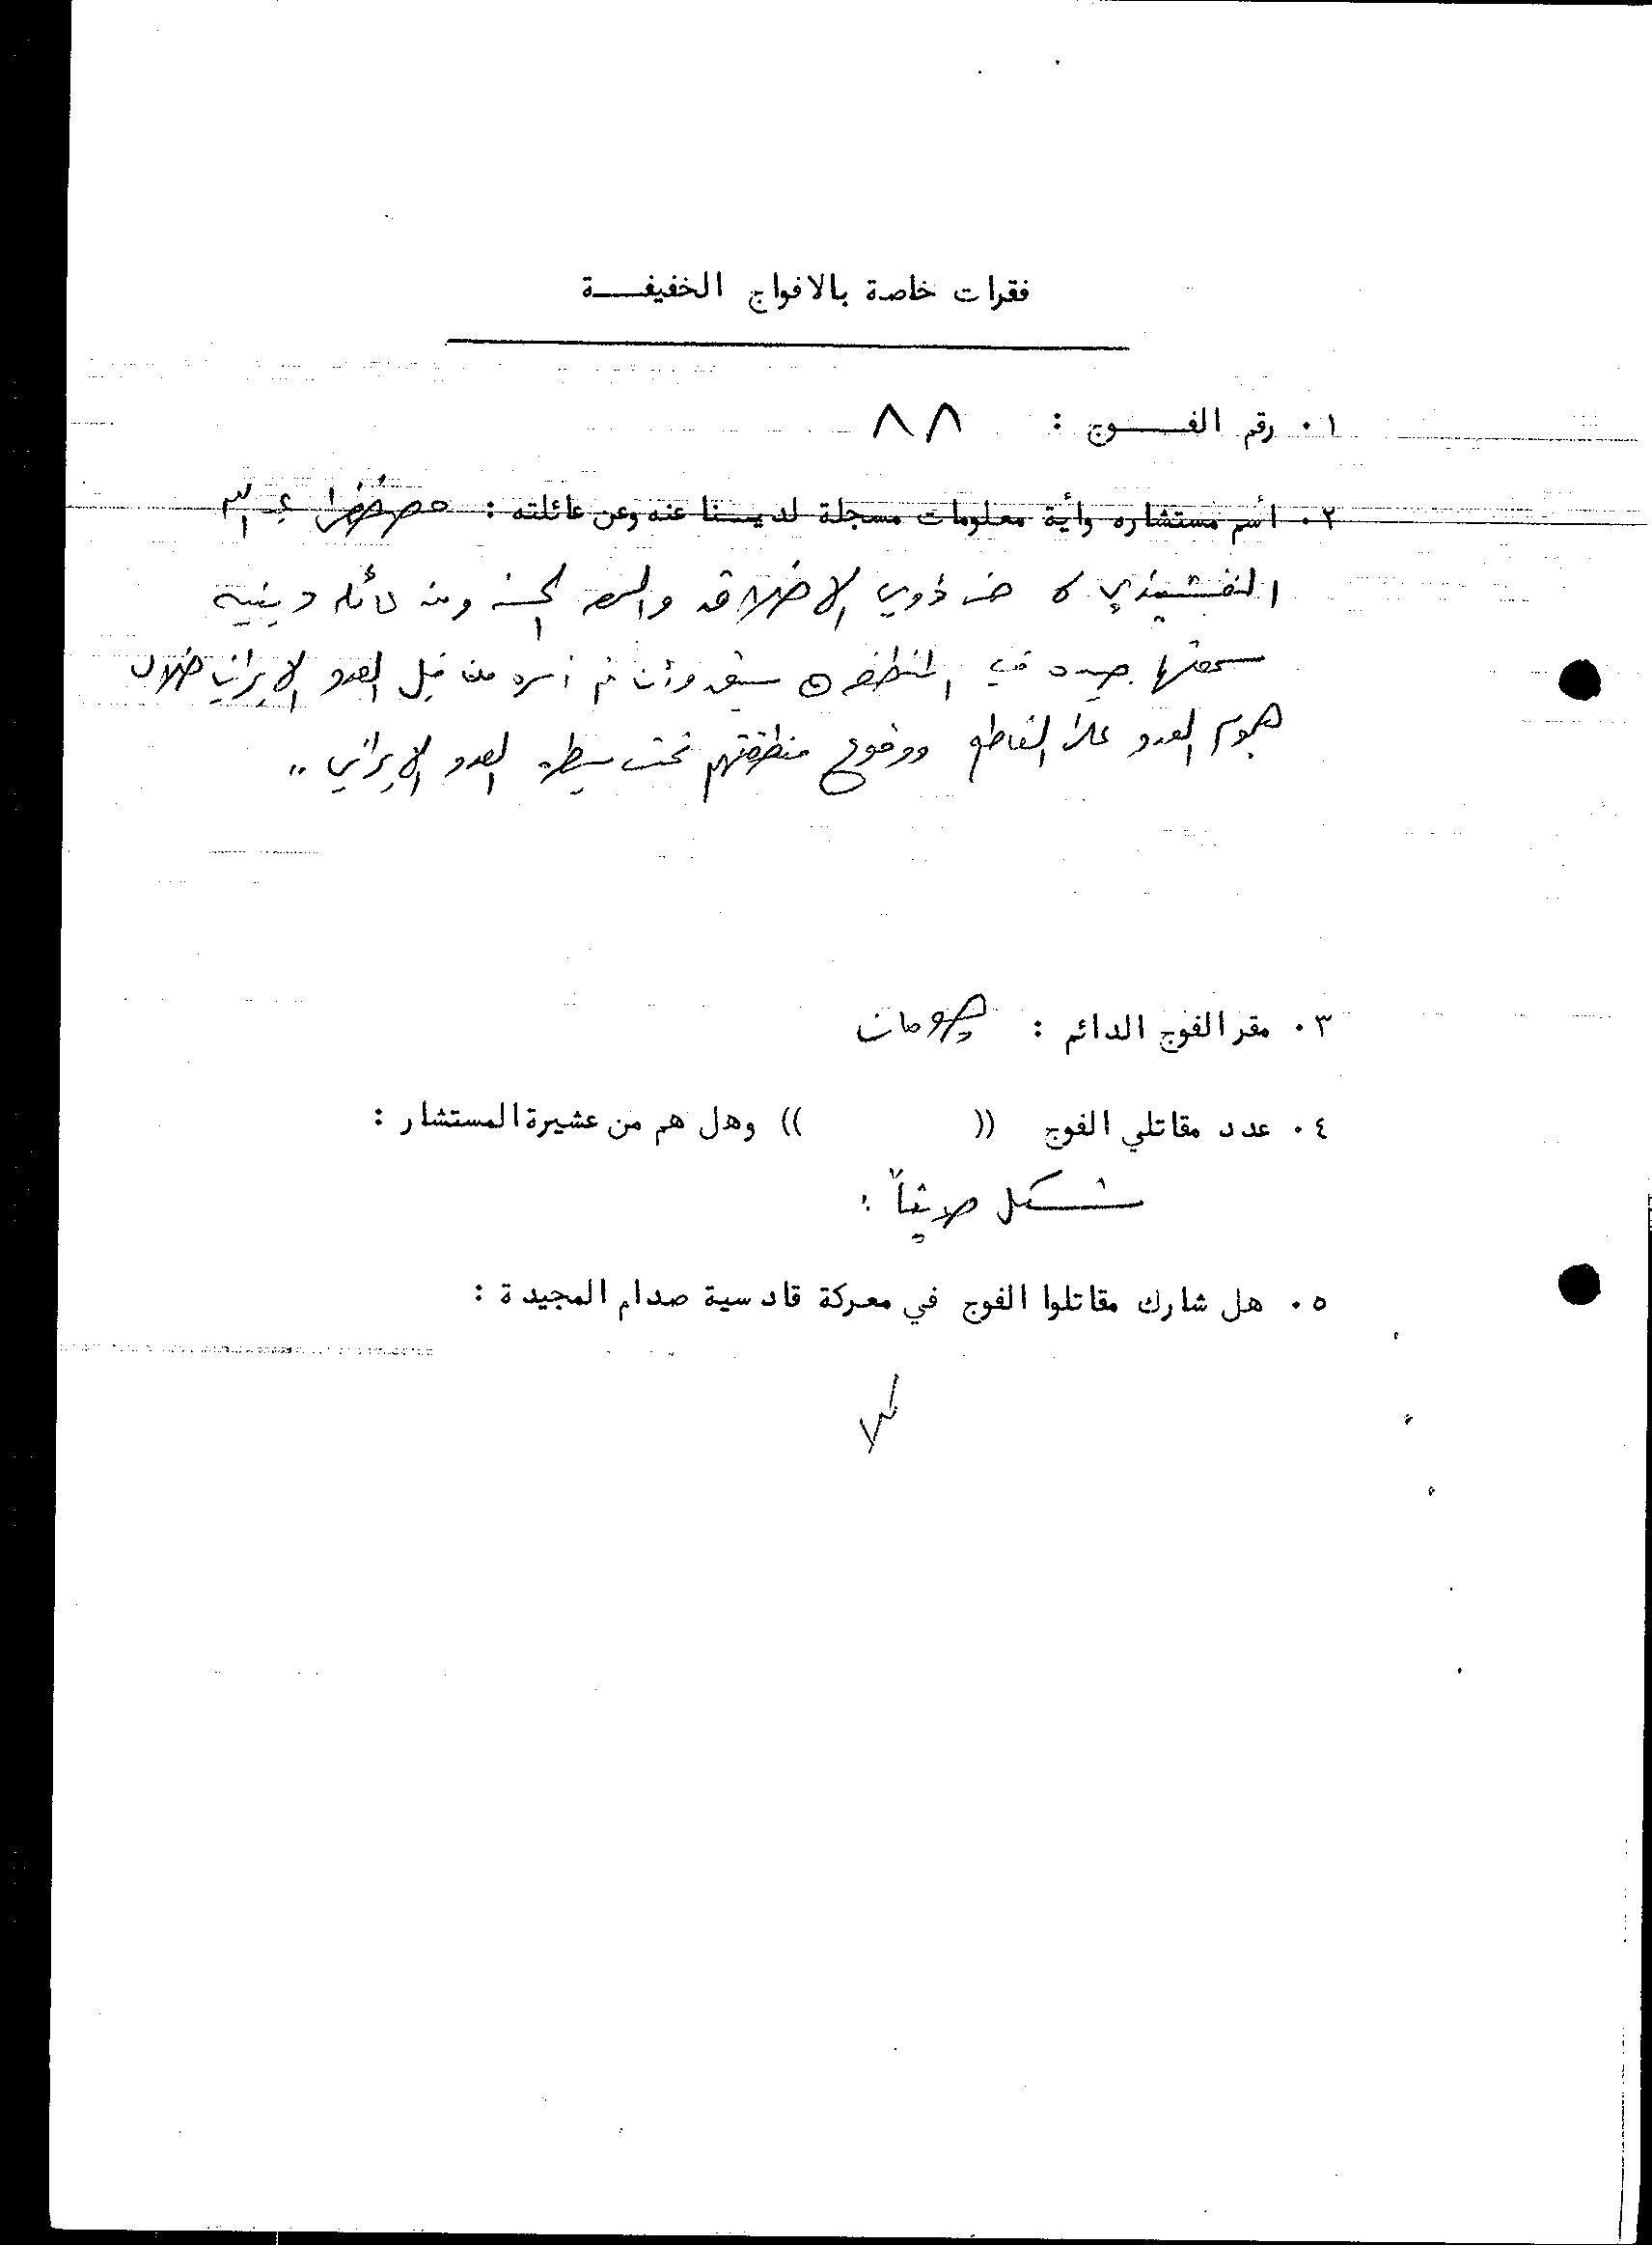 فقرات خاصة بالافواج الخفيفـــة
٠١ رقم الفـــوج : ٨٨
٠٢ أسم مستشاره وأية معلومات مسجلة لديـــنا عنه وعن عائلته :
النقشبندي من ذوي الاخلاق والسمعه الحسنه ومن عائله دينيه
سمعتها جيده في المنطقه سبق وأن تم أسره من قبل العدو الايراني خلال
هجوم العدو على القاطع ووقوع منطقتهم تحت سيطرة العدو الايراني ..
٠٣ مقر الفوج الدائم : جومان
٠٤ عدد مقاتلي الفوج (( )) وهل هم من عشيرة المستشار :
شكل حديثاً :
٠٥ هل شارك مقاتلوا الفوج في معركة قادسية صدام المجيدة :
كلا